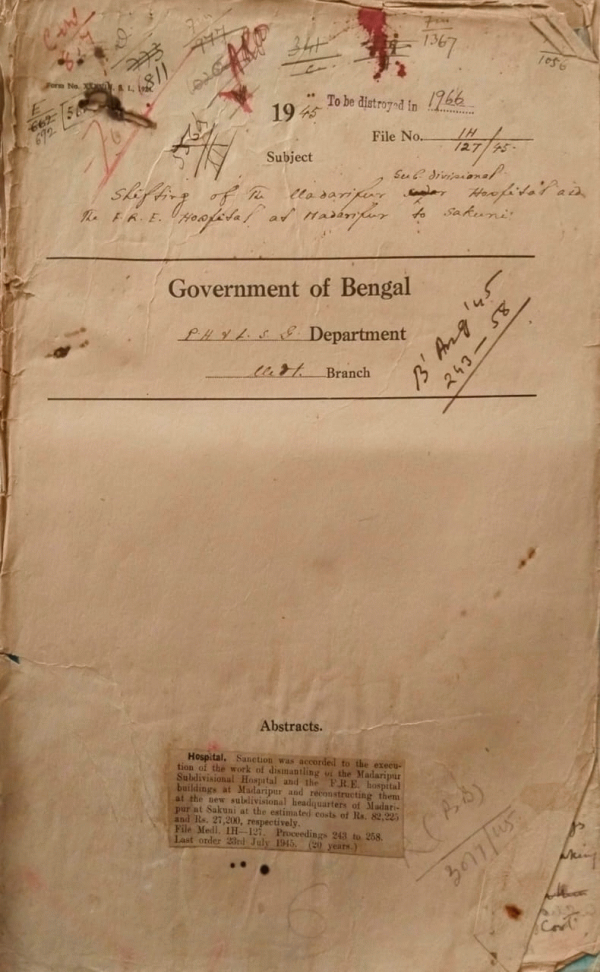 341
1367
1056
811
19 45 To be distroyed in 1966
File No. 1H
127/45
Subject
Sub divisional
Shifting of the Madaripur Hospital and
the F.R.E. Hospital at Madaripur to Sakuni
Government of Bengal
P H & L. S. G. Department
Medl. Branch
B' Aug '45
243 - 58
Abstracts.
Hospital. Sanction was accorded to the execu-
tion of the work of dismantling of the Madaripur
Subdivisional Hospital and the F.R.E. hospital
buildings at Madaripur and reconstructing them
at the new subdivisional headquarters of Madari-
pur at Sakuni at the estimated costs of Rs. 82,225
and Rs. 27,200, respectively.
File Medl. 1H—127. Proceedings 243 to 258.
Last order 23rd July 1945. (20 years.)
3077/45